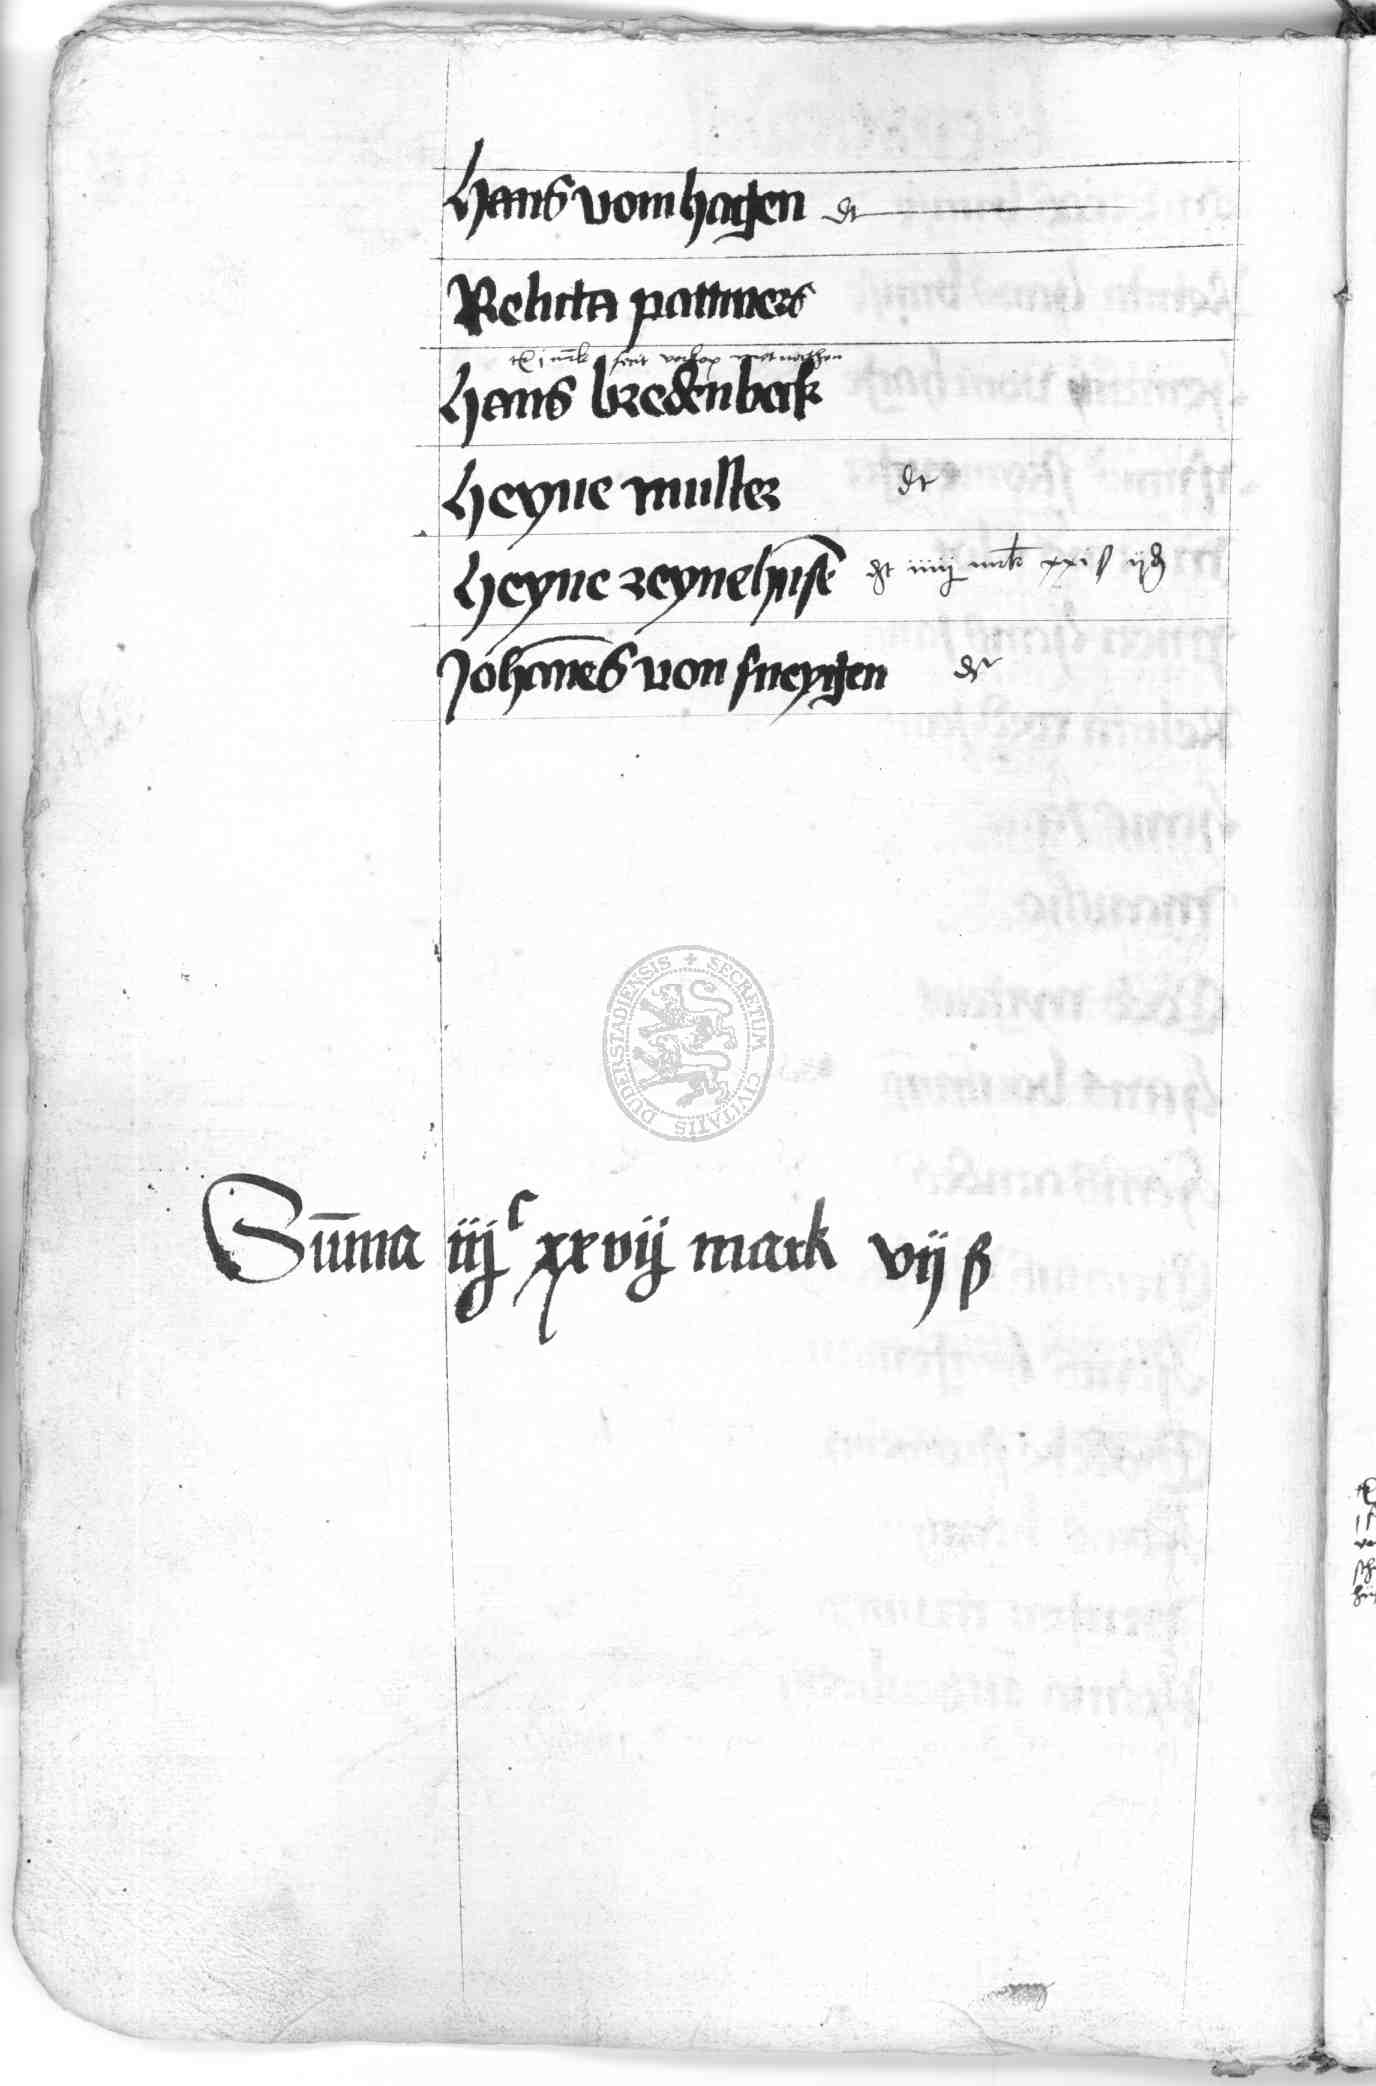 Hans vom hagen dt
Relicta pattiners
j mrk
Hans bredenbeck
Heyne muller dt
Heyne reynehuse dt iiij mrk xxi s ij d
Johanes von sneygen dt
DUDERSTADIENSIS + SECRETUM CIVITATIS
Suma iij c xxvij mark vij ß